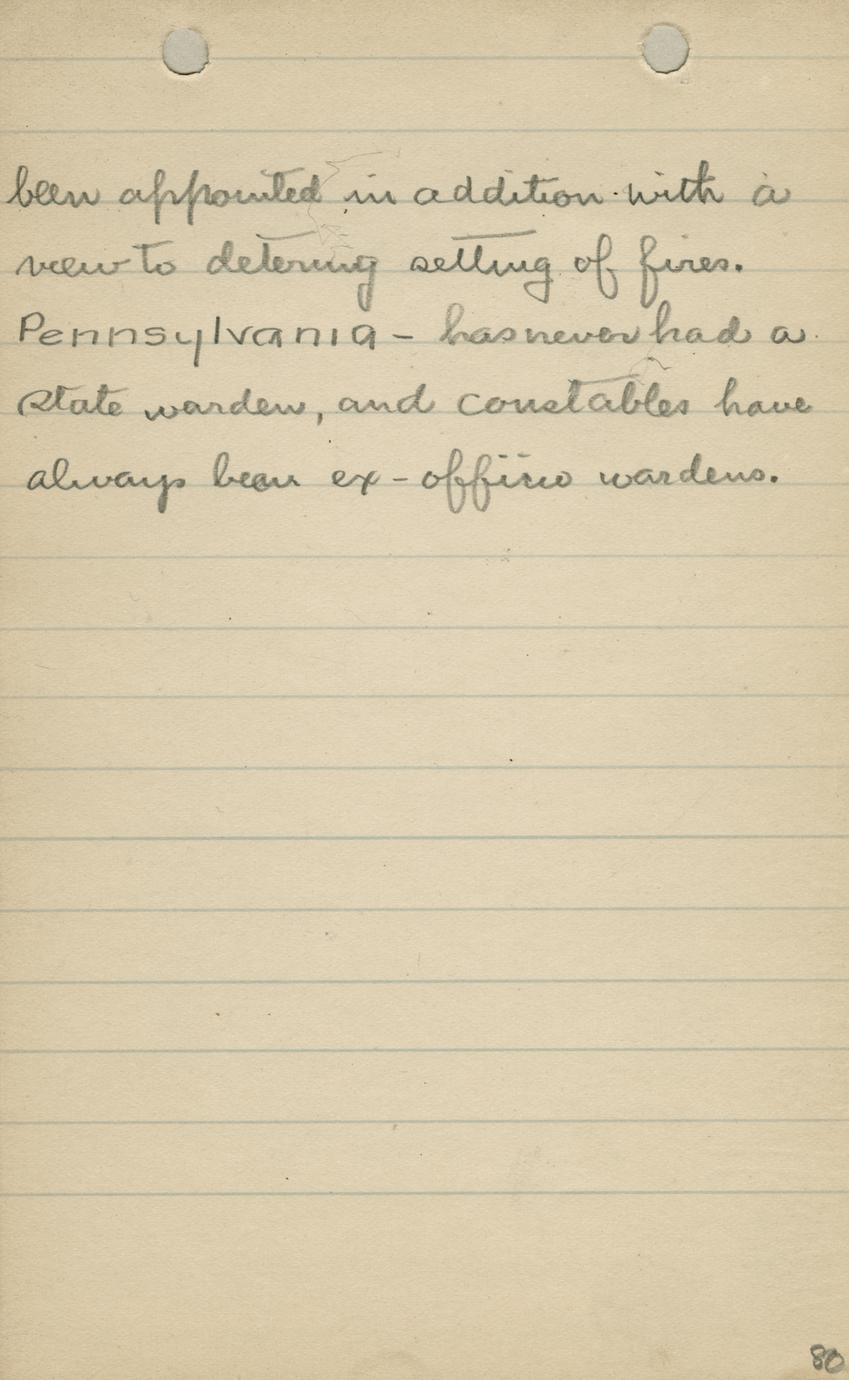 been appointed in addition with a
view to detering setting of fires.
Pennsylvania - has never had a
state warden, and constables have
always been ex-officio wardens.
80